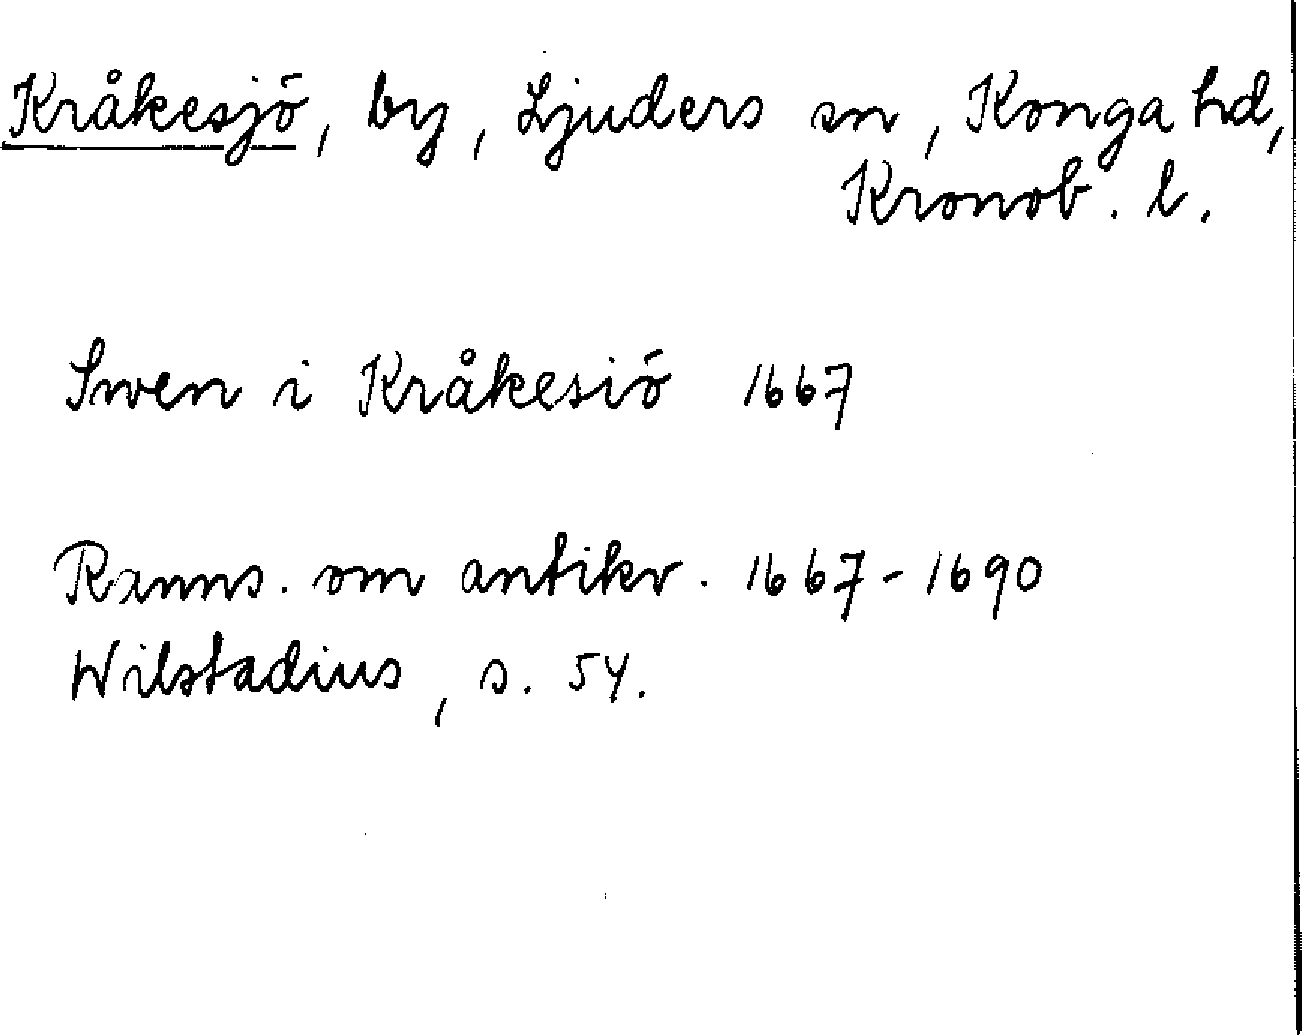 Kråkesjö, by, Ljuders sn, Konga hd,
Kronob. l.
Swen i Kråkesiö 1667
Ranns. om antikv. 1667-1690
Wilstadius, s. 54.